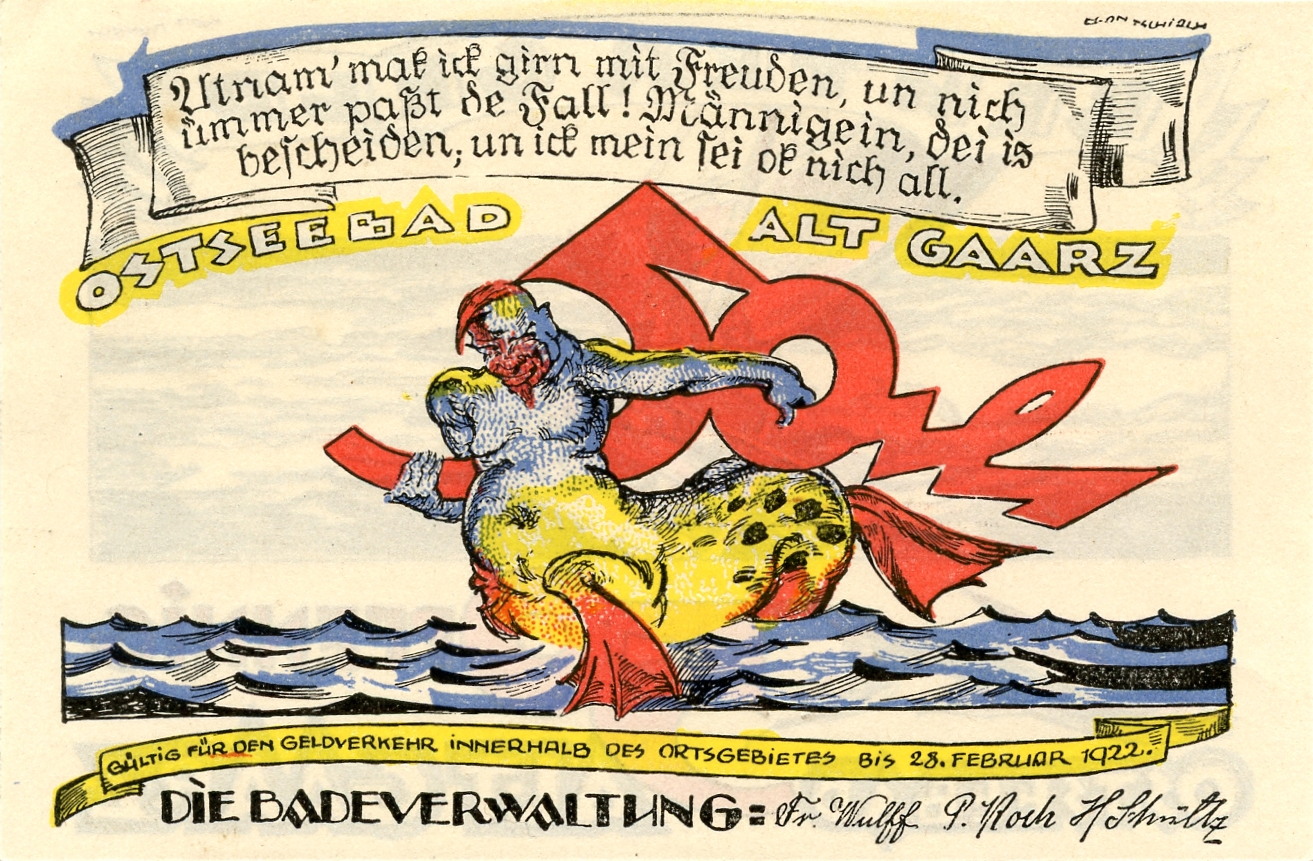 Utnam' mak ick girn mit Freuden, un nich
ümmer paßt de Fall! Männigein, dei is
bescheiden; un ick mein sei ok nich all.
OSTSEEBAD ALT GAARZ
GÜLTIG FÜR DEN GELDVERKEHR INNERHALB DES ORTSGEBIETES BIS 28. FEBRUAR 1922.
DIE BADEVERWALTUNG: Fr. Wulff P. Koch H Schültz